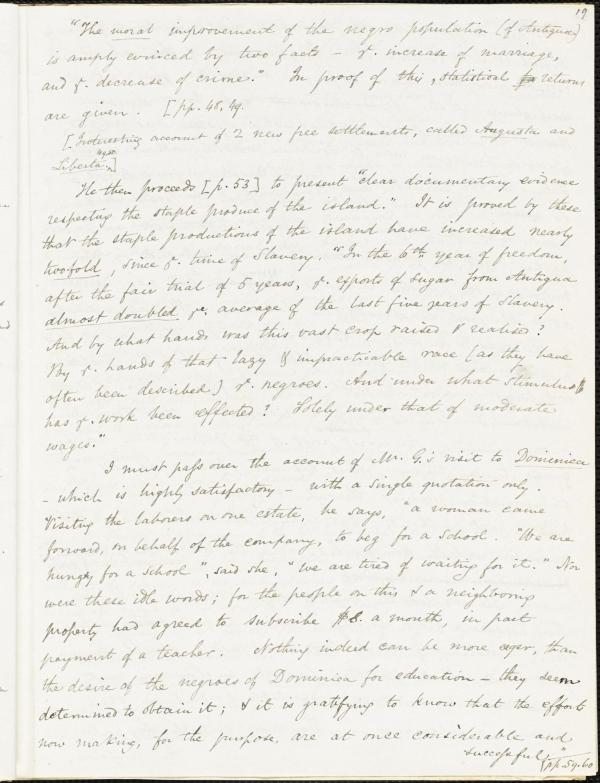 19
"The moral improvement of the negro population (of Antigua)
is amply evinced by two facts – ye. increase of marriage,
and ye. decrease of crime." In proof of this, statistical returns
are given. [pp. 48, 49.
[Interesting account of 2 new free settlements, called Augusta and
Liberta.]
He then proceeds [p. 53] to present "clear documentary evidence
respecting the staple produce of the island." It is proved by these
that the staple productions of the island have increased nearly
twofold, since ye. time of Slavery. "In the 6th year of freedom,
after the fair trial of 5 years, ye. exports of sugar from Antigua
almost doubled ye. average of the last five years of Slavery.
And by what hands was this vast crop raised & realised?
By ye. hands of that lazy & impracticable race (as they have
often been described) ye. negroes. And under what stimulus
has ye. work been effected? Solely under that of moderate
wages."
I must pass over the account of Mr. G.'s visit to Dominica
– which is highly satisfactory – with a single quotation only.
Visiting the laborers on one estate, he says, "a woman came
forward, on behalf of the company, to beg for a school. "We are
hungry for a school", said she, "we are tired of waiting for it." Nor
were these idle words; for the people on this & a neighboring
property had agreed to subscribe $8. a month, in part
payment of a teacher. Nothing indeed can be more eager, than
the desire of the negroes of Dominica for education – they seem
determined to obtain it; & it is gratifying to know that the efforts
now making, for the purpose, are at once considerable and
successful."
[pp. 59. 60